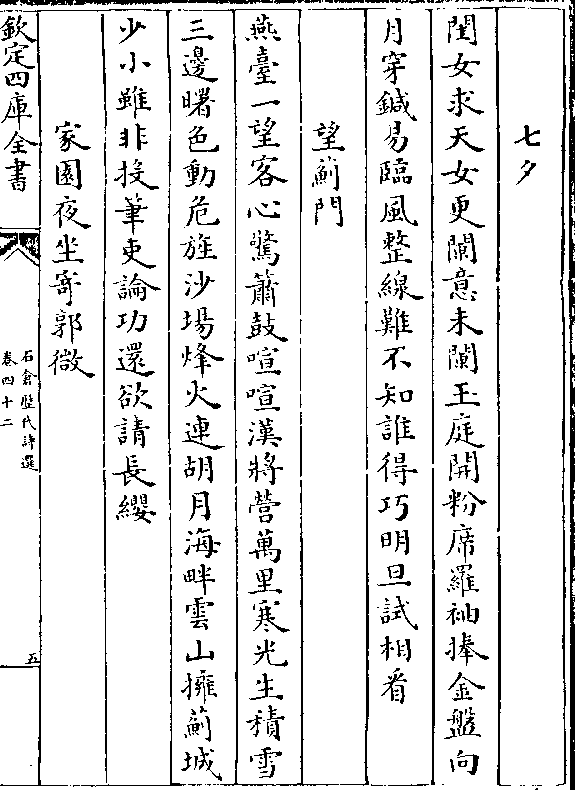 七夕
閨女求天女更闌意未闌玉庭開粉席羅袖捧金盤向
月穿鍼易臨風整線難不知誰得巧明旦試相看
望薊門
燕臺一望客心驚簫鼓喧喧漢將營萬里寒光生積雪
三邊曙色動危旌沙場烽火連胡月海畔雲山擁薊城
少小雖非投筆吏論功還欲請長纓
家園夜坐寄郭微
欽定四庫全書
石倉歷代詩選
卷四十二
五